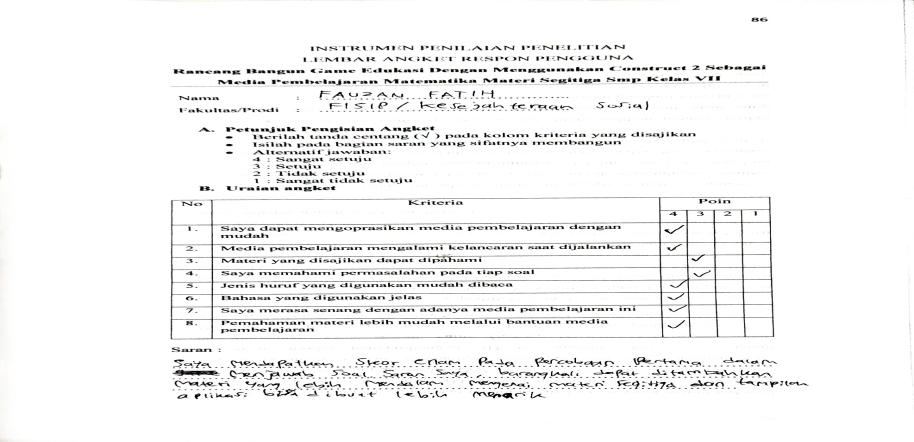 86
INSTRUMEN PENILAIAN PENELITIAN
LEMBAR ANGKET RESPON PENGGUNA
Rancang Bangun Game Edukasi Dengan Menggunakan Construct 2 Sebagai
Media Pembelajaran Matematika Materi Segitiga Smp Kelas VII
Nama : FAUZAN FATIH
Fakultas/Prodi : FISIP / Kesejahteraan Sosial
A. Petunjuk Pengisian Angket
• Berilah tanda centang (√) pada kolom kriteria yang disajikan
• Isilah pada bagian saran yang sifatnya membangun
• Alternatif jawaban:
4 : Sangat setuju
3 : Setuju
2 : Tidak setuju
1 : Sangat tidak setuju
B. Uraian angket
No Kriteria Poin
4 3 2 1
1. Saya dapat mengoprasikan media pembelajaran dengan
mudah ✓
2. Media pembelajaran mengalami kelancaran saat dijalankan ✓
3. Materi yang disajikan dapat dipahami ✓
4. Saya memahami permasalahan pada tiap soal ✓
5. Jenis huruf yang digunakan mudah dibaca ✓
6. Bahasa yang digunakan jelas ✓
7. Saya merasa senang dengan adanya media pembelajaran ini ✓
8. Pemahaman materi lebih mudah melalui bantuan media
pembelajaran ✓
Saran :
Saya mendapatkan Skor enam Pada Percobaan Pertama dalam
menjawab Soal Saran Saya, barangkali dapat ditambahkan
materi yang lebih mendalam mengenai materi segitiga dan tampilan
aplikasi bisa dibuat lebih menarik